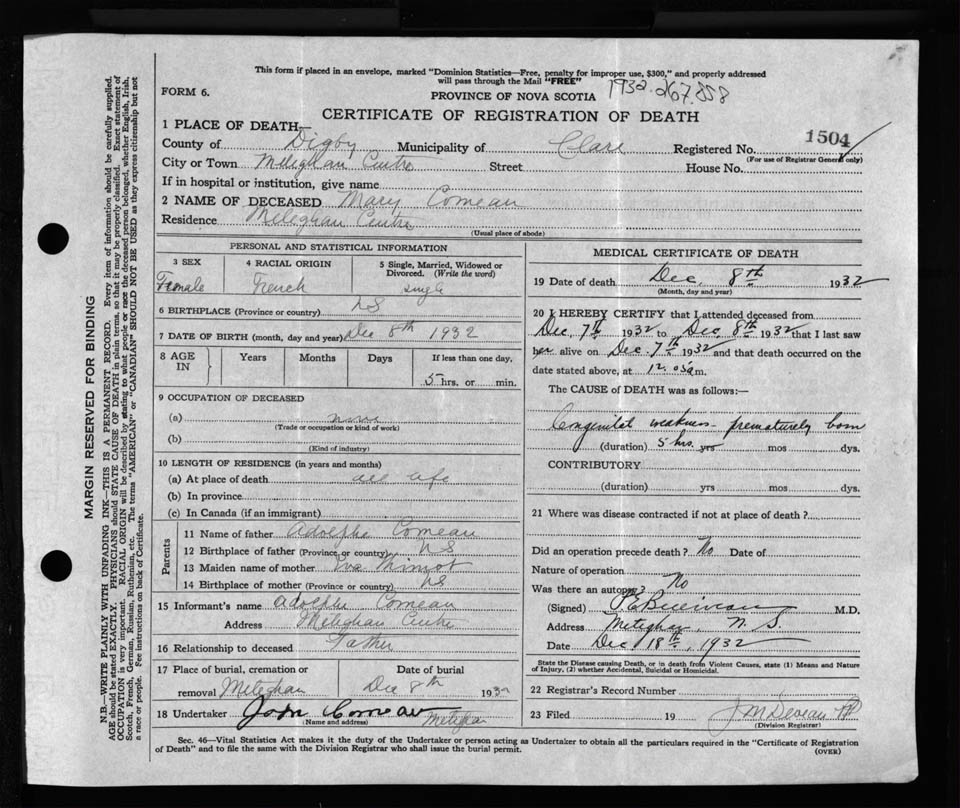 This form if placed in an envelope, marked "Dominion Statistics—Free, penalty for improper use, $300," and properly addressed
will pass through the Mail "FREE"
FORM 6.
PROVINCE OF NOVA SCOTIA
1932-267.858
CERTIFICATE OF REGISTRATION OF DEATH
1504
1 PLACE OF DEATH—
County of Digby Municipality of Clare Registered No.
(For use of Registrar General only)
City or Town Meteghan Centre Street House No.
If in hospital or institution, give name
2 NAME OF DECEASED Mary Comeau
Residence Meteghan Centre
(Usual place of abode)
PERSONAL AND STATISTICAL INFORMATION
3 SEX 4 RACIAL ORIGIN 5 Single, Married, Widowed or
Divorced. (Write the word)
Female French single
6 BIRTHPLACE (Province or country) NS
7 DATE OF BIRTH (month, day and year) Dec 8th 1932
8 AGE IN Years Months Days If less than one day,
5 hrs. or min.
9 OCCUPATION OF DECEASED
(a) none
(Trade or occupation or kind of work)
(b)
(Kind of industry)
10 LENGTH OF RESIDENCE (in years and months)
(a) At place of death all life
(b) In province
(c) In Canada (if an immigrant)
Parents
11 Name of father Adolphe Comeau
12 Birthplace of father (Province or country) NS
13 Maiden name of mother
14 Birthplace of mother (Province or country) NS
15 Informant's name Adolphe Comeau
Address Meteghan Centre
16 Relationship to deceased Father
17 Place of burial, cremation or Date of burial
removal Meteghan Dec 8th 1932
18 Undertaker John Comeau Meteghan
(Name and address)
MEDICAL CERTIFICATE OF DEATH
19 Date of death Dec. 8th 1932
(Month, day and year)
20 I HEREBY CERTIFY that I attended deceased from
Dec. 7th 1932 to Dec. 8th 1932 that I last saw
her alive on Dec. 7th 1932 and that death occurred on the
date stated above, at 12.05 a.m.
The CAUSE of DEATH was as follows:
Congenital weakness prematurely born
(duration) 5 hrs. yrs mos dys.
CONTRIBUTORY
(duration) yrs mos dys.
21 Where was disease contracted if not at place of death?
Did an operation precede death? No Date of
Nature of operation
Was there an autopsy? No
(Signed) M.D.
Address Meteghan, N.S.
Date Dec 18th, 1932
State the Disease causing Death, or in death from Violent Causes, state (1) Means and Nature
of Injury, (2) whether Accidental, Suicidal or Homicidal.
22 Registrar's Record Number
23 Filed 19 J M Deveau
(Division Registrar)
Sec. 46—Vital Statistics Act makes it the duty of the Undertaker or person acting as Undertaker to obtain all the particulars required in the "Certificate of Registration
of Death" and to file the same with the Division Registrar who shall issue the burial permit.
(OVER)
MARGIN RESERVED FOR BINDING
N.B.—WRITE PLAINLY WITH UNFADING INK—THIS IS A PERMANENT RECORD. Every item of information should be carefully supplied.
AGE should be stated EXACTLY. PHYSICIANS should STATE CAUSE OF DEATH in plain terms, so that it may be properly classified. Exact statement of
OCCUPATION is very important. RACIAL ORIGIN will be described by stating to what people or race the deceased person belonged, whether English, Irish,
Scotch, French, German, Russian, Ruthenian, etc. The terms "AMERICAN" or "CANADIAN" SHOULD NOT BE USED as they express citizenship but not
a race or people. See instructions on back of Certificate.